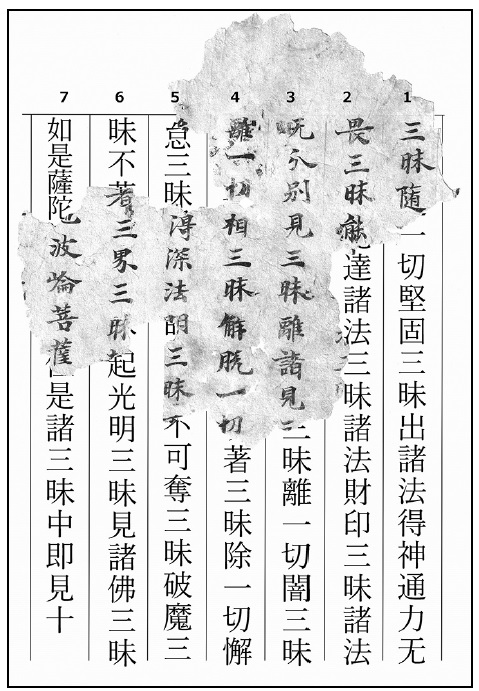 7 6 5 4 3 2 1
三昧隨一切堅固三昧出諸法得神通力无
畏三昧能達諸法三昧諸法財印三昧諸法
无分別見三昧離諸見三昧離一切闇三昧
離一切相三昧解脱一切著三昧除一切懈
怠三昧得深法朙三昧不可奪三昧破魔三
昧不著三界三昧起光明三昧見諸佛三昧
如是薩陀波崘菩薩住是諸三昧中即見十